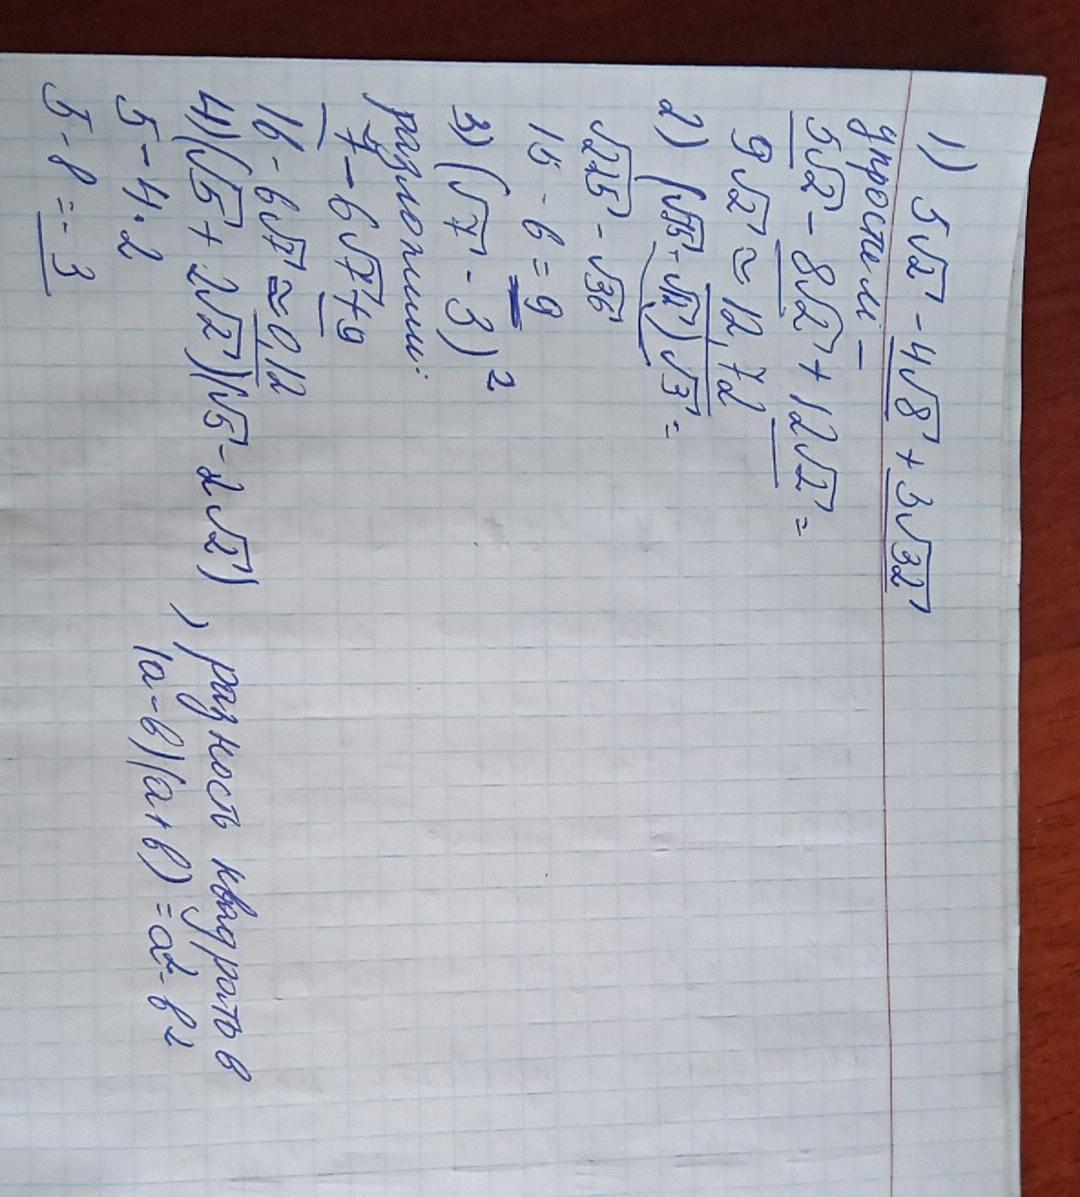 1) 5√2 - 4√8 + 3√32
упростили -
5√2 - 8√2 + 12√2 =
9√2 ≈ 12,72
2) (√75 - √12)√3 =
√225 - √36
15 - 6 = 9
3) (√7 - 3)²
разложим:
7 - 6√7 + 9
16 - 6√7 ≈ 0,12
4) (√5 + 2√2)(√5 - 2√2), разность квадратов
5 - 4·2 (a-b)(a+b) = a² - b²
5 - 8 = -3